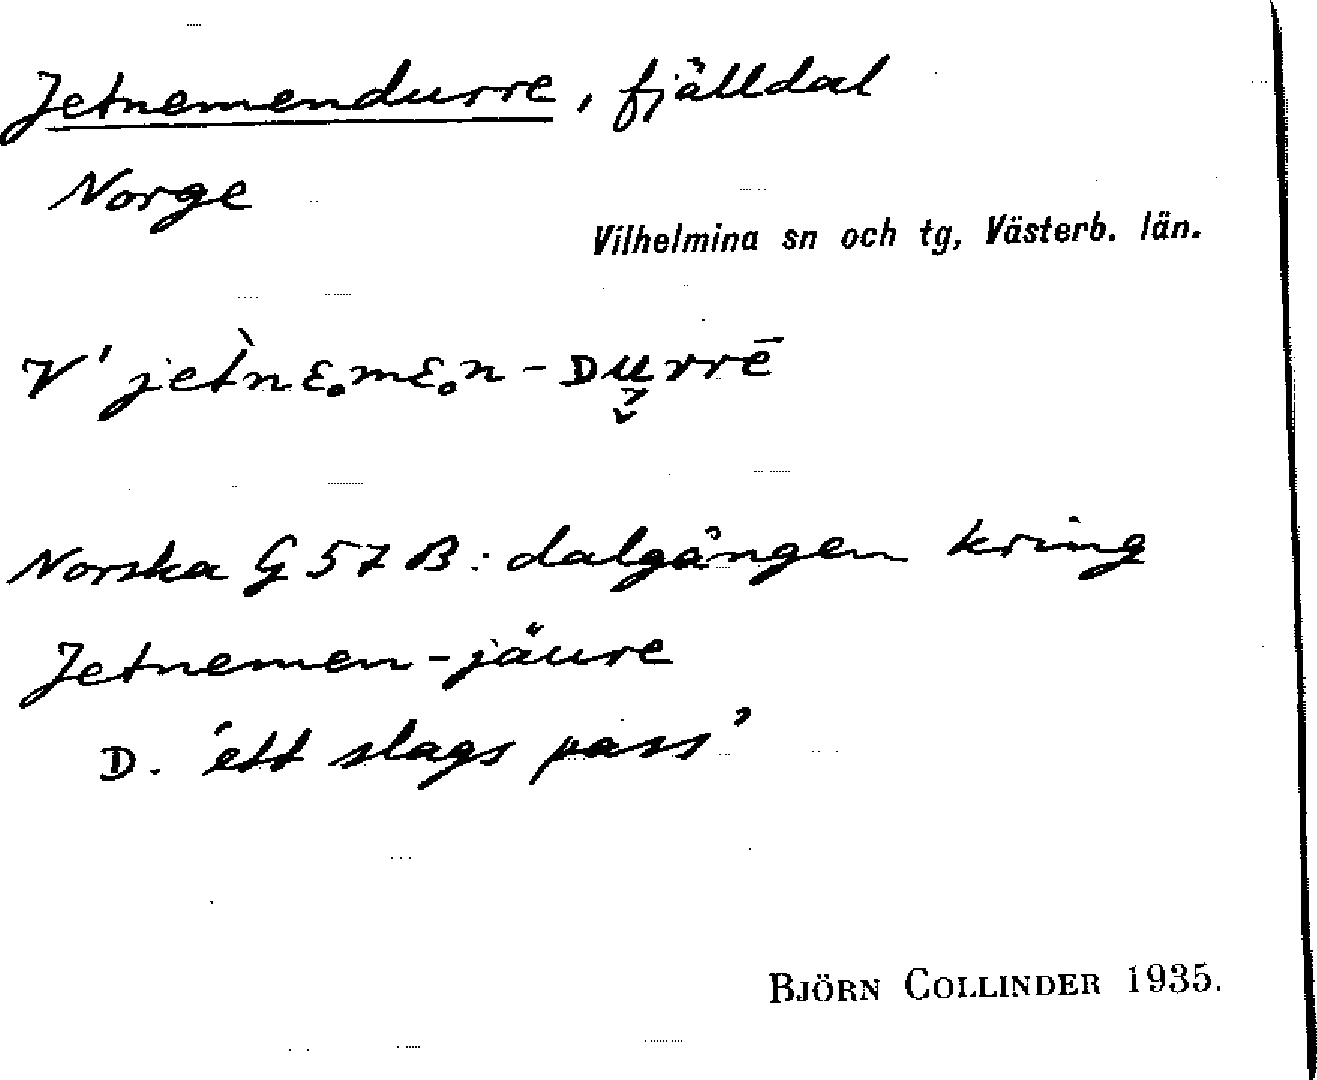 Jetnemendurre, fjälldal
Norge
Vilhelmina sn och tg, Västerb. län.
V' jetnɛ̥mɛ̥n-ᴅu̬rrē
Norska G 57 B: dalgången kring
Jetnemen-jäure
D. 'ett slags pass'
BJÖRN COLLINDER 1935.